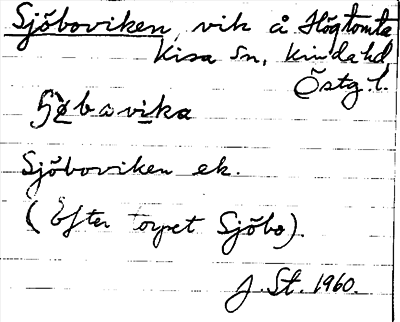 Sjöboviken, vik å Högtomta
Kisa sn, Kinda hd,
Östg. l.
Sjöboviken ek.
(Efter torpet Sjöbo).
J. St. 1960.